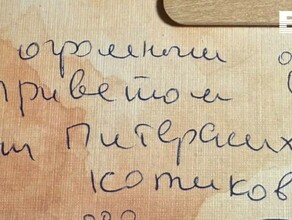 огромным
приветом
Питерских
котиков